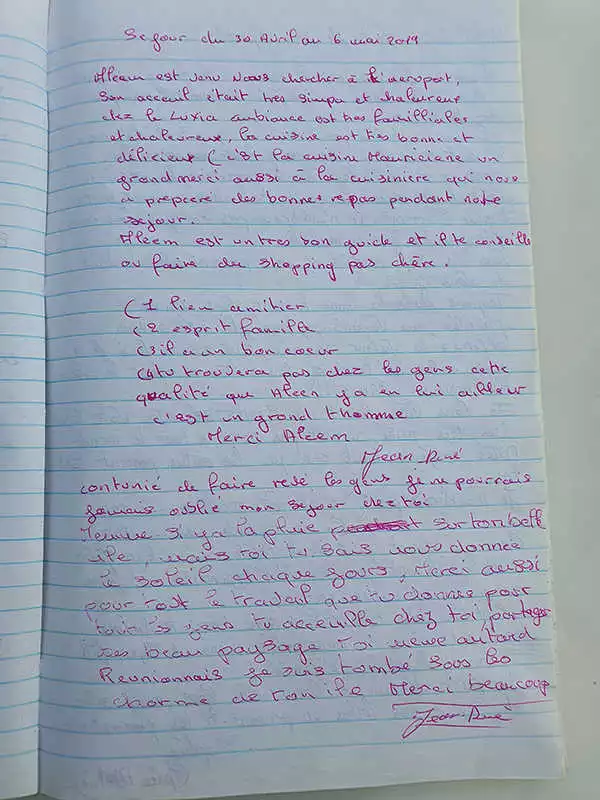 Sejour du 30 Avril au 6 mai 2019
Aleem est venu nous chercher à l'aeroport,
Son acceuil était tres simpa et chaleureux
chez le Luxia ambiance est tres familliales
et chaleureux, la cuisine est très bonne et
délicieux (c'est la cuisine Mauriciene un
grand merci aussi à la cuisiniere qui nous
a préparé des bonnes repas pendant notre
sejour.
Aleem est un tres bon guide et il te conseille
ou faire du shopping pas chère.
(1 lien amitier
(2 esprit famille
(3 il a un bon coeur
(4 tu trouvera pas chez les gens cette
qualité que Aleem y a en lui ailleur
c'est un grand homme
Merci Aleem
Jean René
contunié de faire revé les gens je ne pourrais
jamais oublié mon sejour chez toi
Meme si y a la pluie sur ton belle
ile, mais toi tu sais nous donnée
le soleil chaque jours, Merci aussi
pour tout le travail que tu donne pour
tout les gens tu acceuille chez toi, partager
tes beau paysage toi meme autard
Reunionnais je suis tombé sous le
charme de ton ile Merci beaucoup
Jean-René